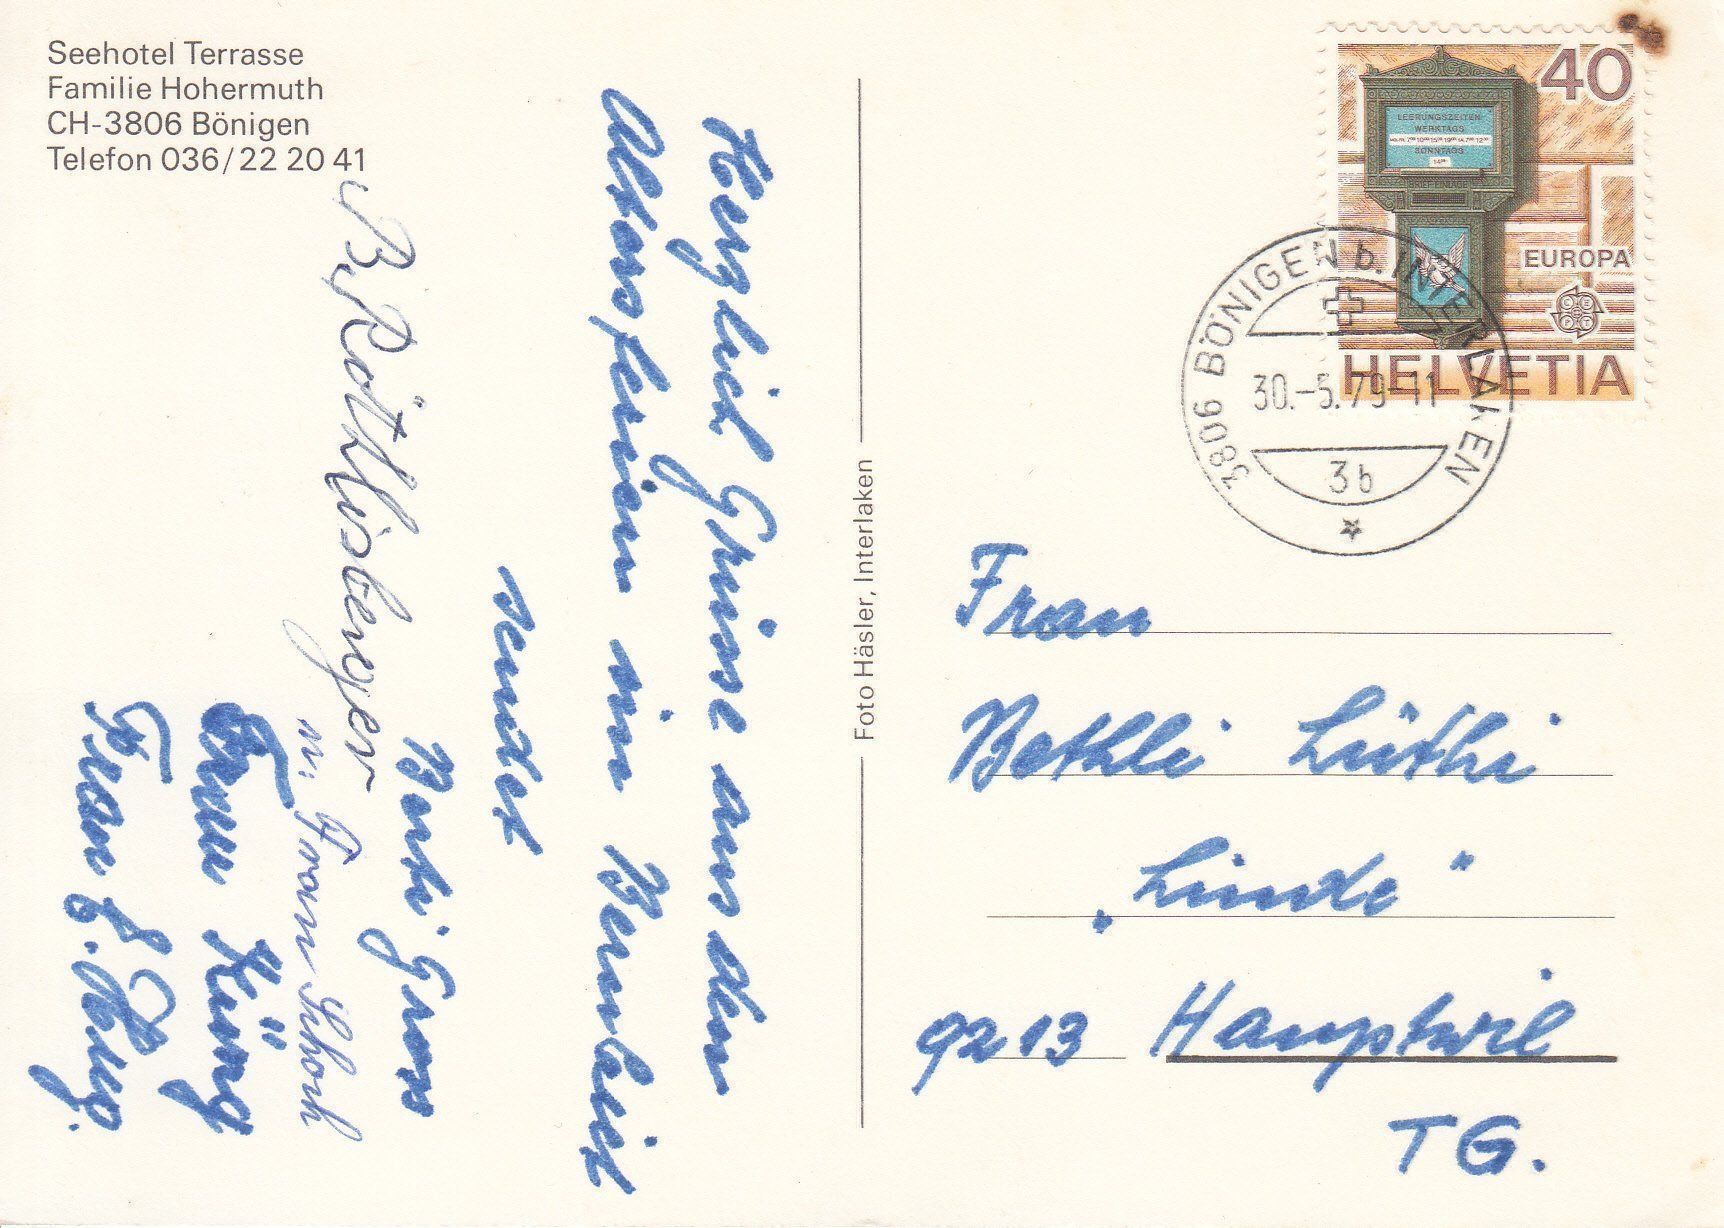 Seehotel Terrasse
Familie Hohermuth
CH-3806 Bönigen
Telefon 036/22 20 41
Herzlich Grüsse aus den
Altersferien in
sendet
Berti Gross
B. Röthlisberger
m. Fram Schoch
Erna Küng
Frau E. Hug.
Foto Häsler, Interlaken
40
LEERUNGSZEITEN
WERKTAGS
SONNTAGS
BRIEFEINLAGE
EUROPA
CEPT
HELVETIA
3806 BÖNIGEN b. INTERLAKEN
30.-5.79-11
3b
Frau
Bethli Lüthi
„Linde"
9213 Hauptwil
TG.